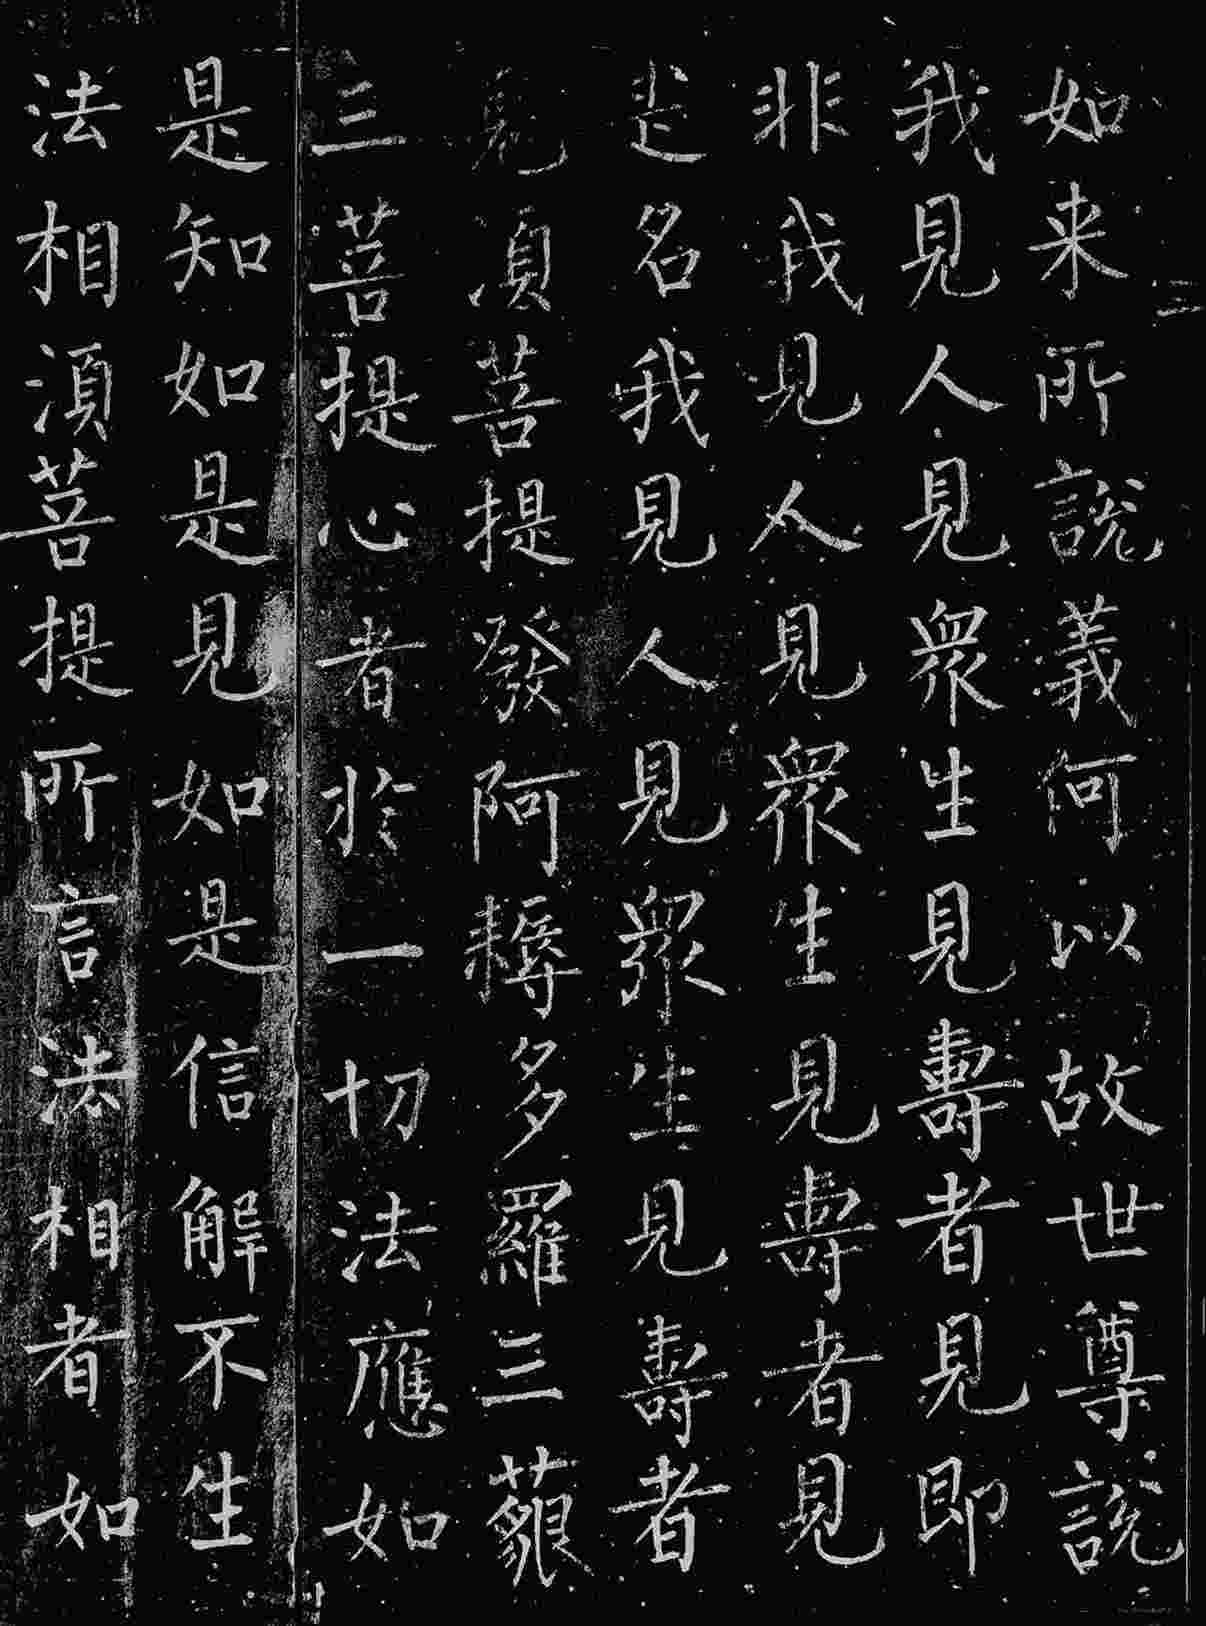 如来所說義何以故世尊說
我見人見衆生見壽者見即
非我見人見衆生見壽者見
是名我見人見衆生見壽者
見須菩提發阿耨多羅三藐
三菩提心者於一切法應如
是知如是見如是信解不生
法相須菩提所言法相者如